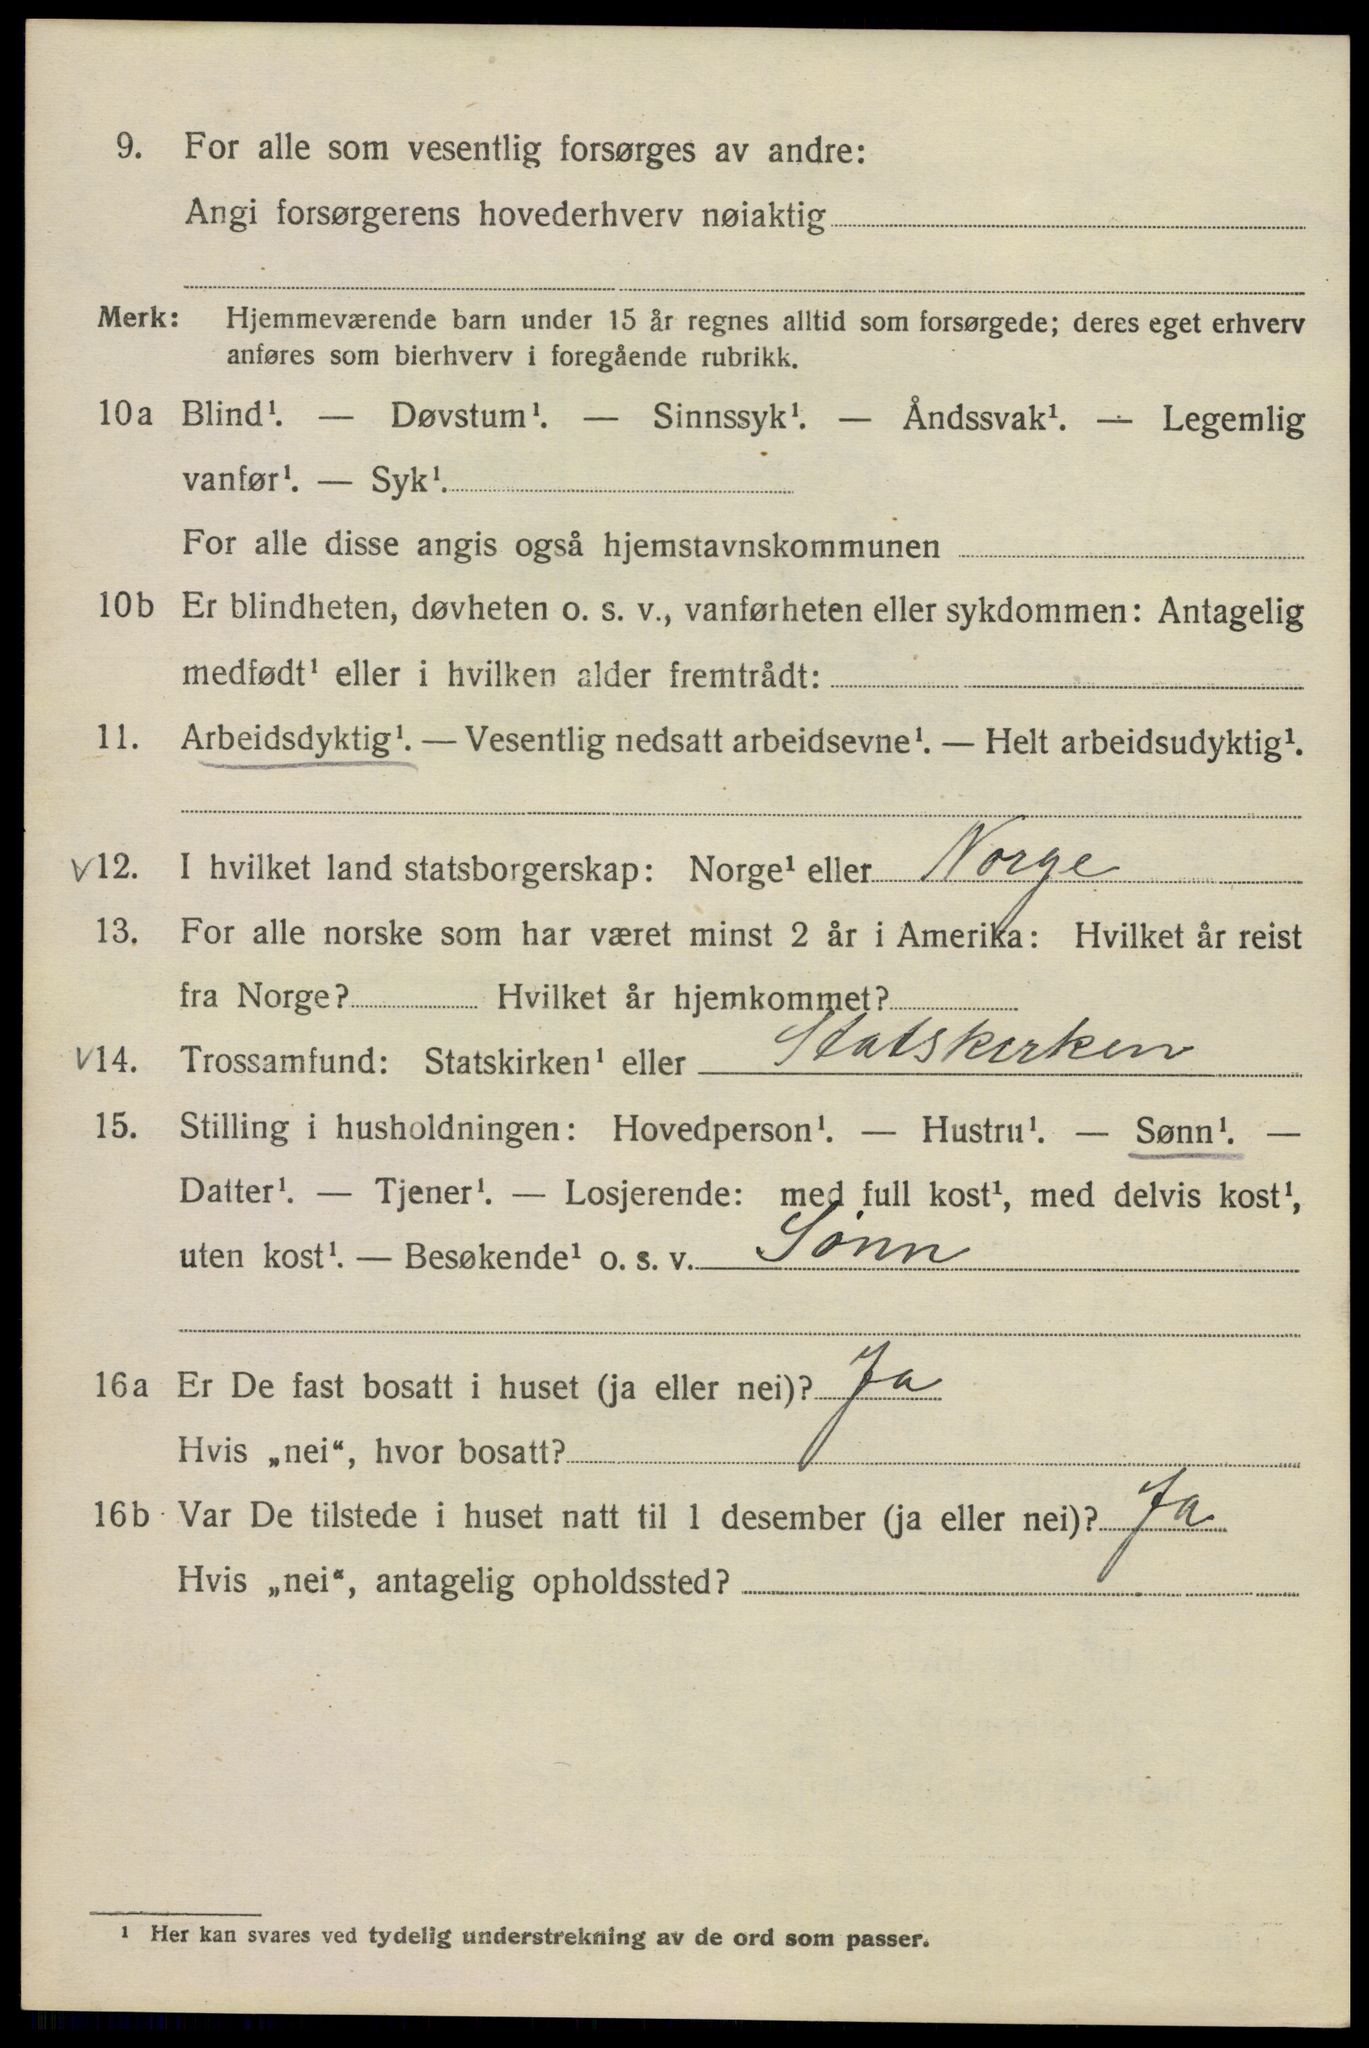 9. For alle som vesentlig forsørges av andre:
Angi forsørgerens hovederhverv nøiaktig
Merk: Hjemmeværende barn under 15 år regnes alltid som forsørgede; deres eget erhverv
anføres som bierhverv i foregående rubrikk.
10a Blind¹. — Døvstum¹. — Sinnssyk¹. — Åndssvak¹. — Legemlig
vanfør¹. — Syk¹.
For alle disse angis også hjemstavnskommunen
10b Er blindheten, døvheten o. s. v., vanførheten eller sykdommen: Antagelig
medfødt¹ eller i hvilken alder fremtrådt:
11. Arbeidsdyktig¹. — Vesentlig nedsatt arbeidsevne¹. — Helt arbeidsudyktig¹.
V 12. I hvilket land statsborgerskap: Norge¹ eller Norge
13. For alle norske som har været minst 2 år i Amerika: Hvilket år reist
fra Norge? Hvilket år hjemkommet?
V 14. Trossamfund: Statskirken¹ eller Statskirken
15. Stilling i husholdningen: Hovedperson¹. — Hustru¹. — Sønn¹. —
Datter¹. — Tjener¹. — Losjerende: med full kost¹, med delvis kost¹,
uten kost¹. — Besøkende¹ o. s. v. Sønn
16a Er De fast bosatt i huset (ja eller nei)? Ja
Hvis „nei“, hvor bosatt?
16b Var De tilstede i huset natt til 1 desember (ja eller nei)? Ja
Hvis „nei“, antagelig opholdssted?
¹ Her kan svares ved tydelig understrekning av de ord som passer.